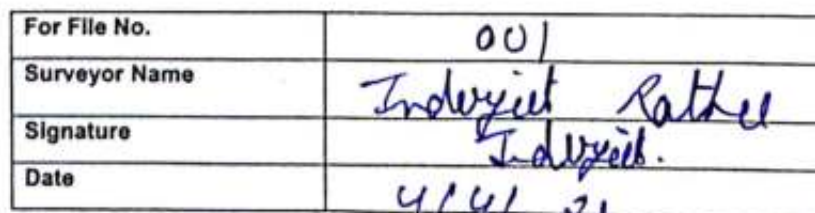 For File No. 001
Surveyor Name Inderjeet Rathee
Signature Inderjeet.
Date 4/4/ 21